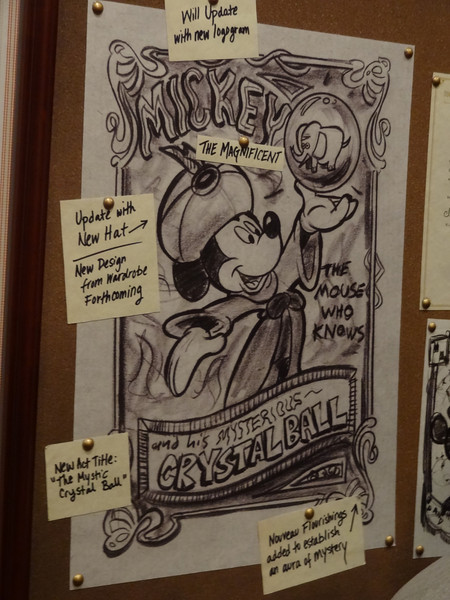 Will Update
with new logogram
MICKEY
THE MAGNIFICENT
Update with
New Hat
New Design
from Wardrobe
Forthcoming
THE
MOUSE
WHO
KNOWS
and his MYSTERIOUS
CRYSTAL BALL
New Act Title:
"The Mystic
Crystal Ball"
Nouveau Flourishings
added to establish
an aura of mystery